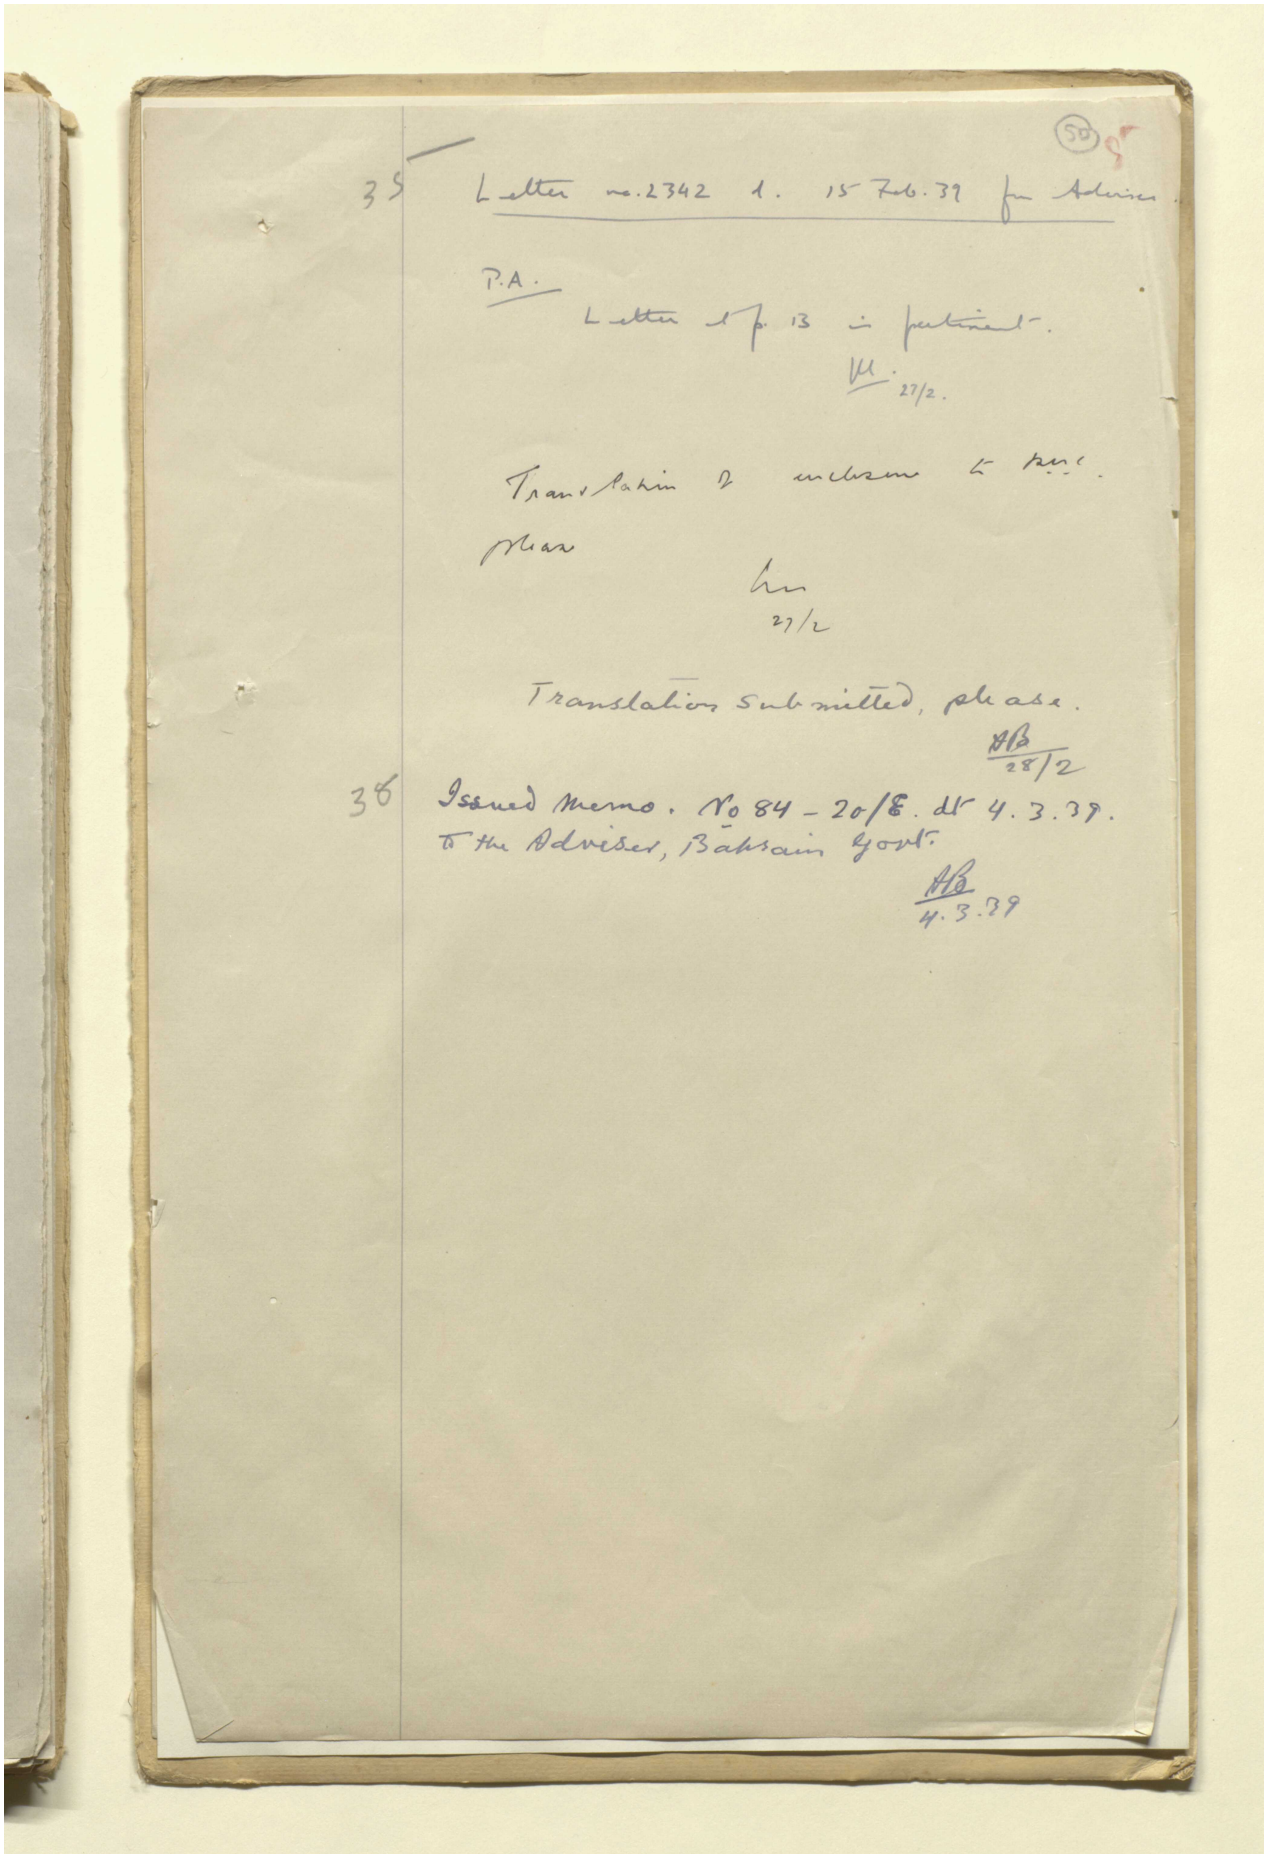 50
8
35 Letter no. 2342 d. 15 Feb. 39 fm Adviser.
P.A.
Letter at p. 13 is pertinent.
27/2.
Translation of enclosure to
please
27/2
Translation submitted, please.
AB
28/2
38 Issued Memo. No 84 - 20/E. dt 4.3.39.
to the Adviser, Bahrain Govt.
AB
4.3.39